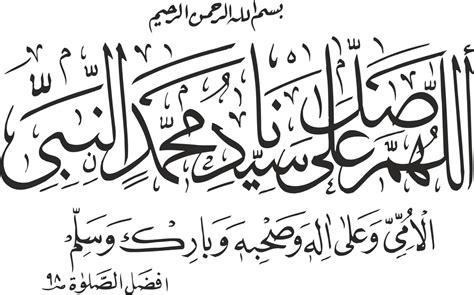 بسم الله الرحمن الرحيم
اللهم صل على سيدنا محمد النبي
الامي وعلى اله وصحبه وبارك وسلم
افضل الصلوة ٩٨